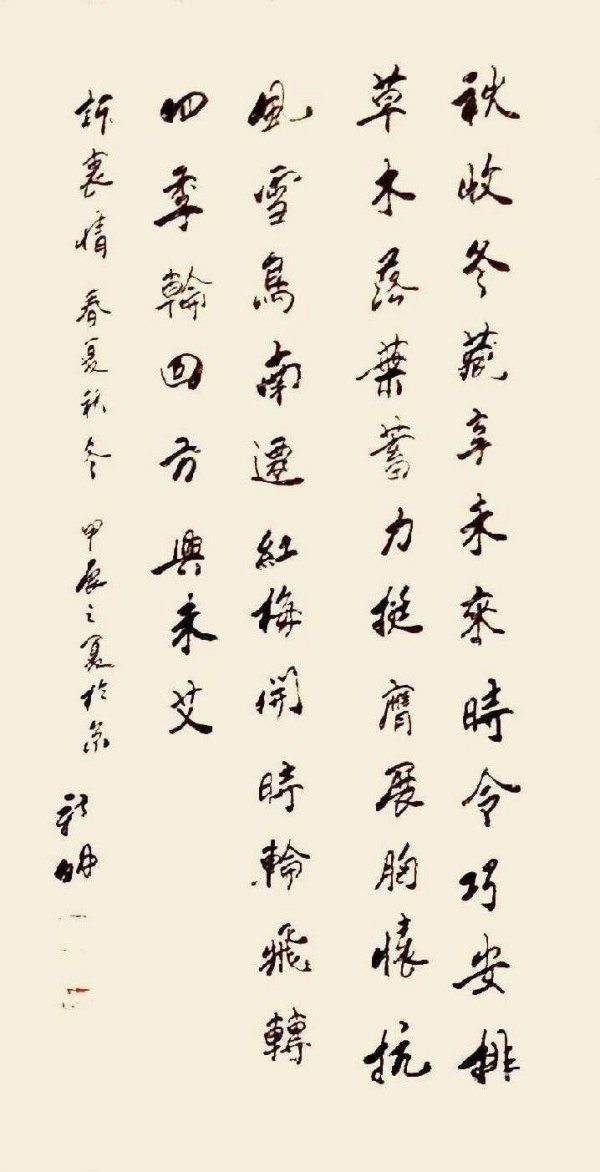 秋收冬藏享未來時令巧安排
草木落葉蓄力挺膺展胸懷抗
風雪鳥南遷紅梅開時輪飛轉
四季輪回方興未艾
訴衷情 春夏秋冬 甲辰之夏於京
新明